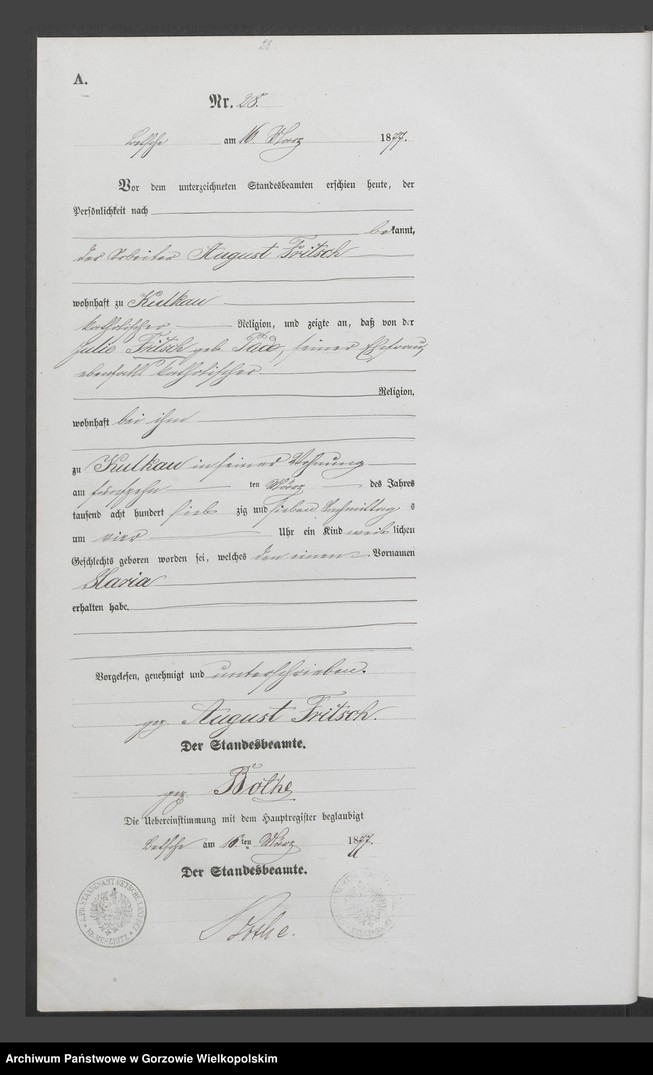 28
A.
Nr. 28.
Betsche am 16 März 1877.
Vor dem unterzeichneten Standesbeamten erschien heute, der
Persönlichkeit nach
bekannt,
der Arbeiter August Fritsch
wohnhaft zu Kulkau
katholischer Religion, und zeigte an, daß von der
Julie Fritsch geb. seiner Ehefrau,
ebenfalls katholischer
Religion,
wohnhaft bei ihm
zu Kulkau in seiner Wohnung
am fünfzehn ten März des Jahres
tausend acht hundert sieb zig und sieben Nachmittag s
um vier Uhr ein Kind weib lichen
Geschlechts geboren worden sei, welches den einen Vornamen
Maria
erhalten habe.
Vorgelesen, genehmigt und unterschrieben.
gez. August Fritsch.
Der Standesbeamte.
gez. Bothe
Die Uebereinstimmung mit dem Hauptregister beglaubigt
Betsche am 16 ten März 1877.
Der Standesbeamte.
Bothe.
Archiwum Państwowe w Gorzowie Wielkopolskim